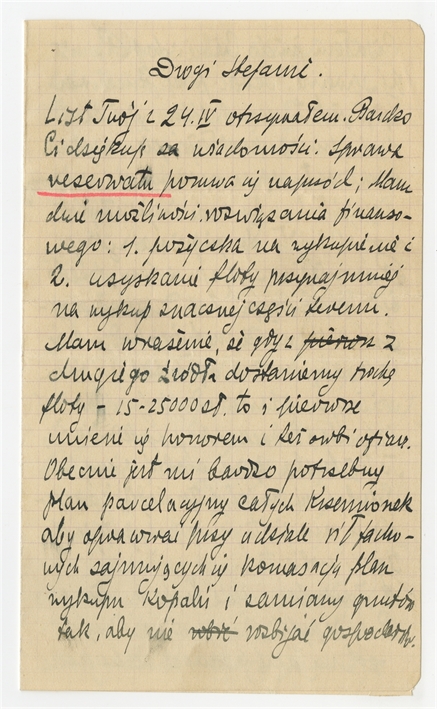 Drogi Stefanie.
List Twój z 24.IV otrzymałem. Bardzo
Ci dziękuję za wiadomości. Sprawa
reserwatu posuwa się naprzód; Mam
dwie możliwości rozwiązania finanso-
wego: 1. pożyczka na wykupienie i
2. uzyskanie floty przynajmniej
na wykup znacznej części terenu.
Mam wrażenie, że gdy z pierwsz z
drugiego źródła dostaniemy trochę
floty - 15-25000 zł. to i pierwsze
uniesie się honorem i też
Obecnie jest mi bardzo potrzebny
plan parcelacyjny całych Krzemionek
aby opracować przy udziale sił facho-
wych zajmujących się komasacją plan
wykupu kopalń i zamiany gruntów
tak, aby nie robić rozbijać gospodarstw.